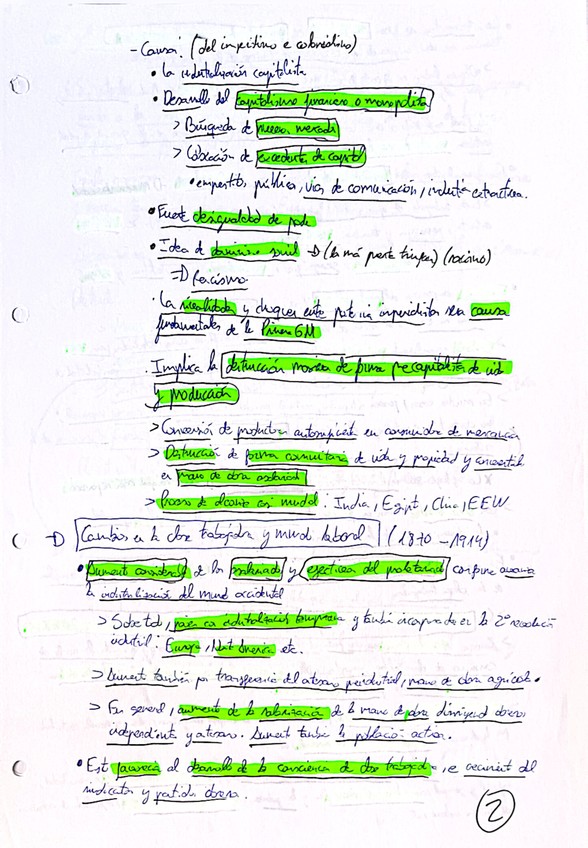 - Causas: (del imperialismo e colonialismo)
• La industrialización capitalista
• Desarrollo del capitalismo financiero o monopolista
> Búsqueda de nuevos mercados
> Colocación de excedentes de capital
• empréstitos públicos, vías de comunicación, industria extractiva.
• Fuerte desigualdad de poder
• Idea de dominio → (la más parte) (racismo)
⇒ Racismo
• La rivalidades y choques entre potencias imperialistas sera causa
fundamentales de la Primera GM
Implica la destrucción masiva de formas precapitalista de vida
y producción
> Conversión de productores autosuficientes en consumidores de mercancías
> Destrucción de formas comunitarias de vida y propiedad y
en mano de obra asalariada
> Proceso de alcance casi mundial: India, Egipto, China, EEUU
→ Cambios en la clase trabajadora y mundo laboral (1870 - 1914)
• Aumento considerable de los asalariados y efectivos del proletariado conforme avanza
la industrialización del mundo occidental
> Sobretodo, países en industrialización temprana y también incorporados en la 2ª revolución
industrial: Europa, Norte América etc.
> Aumento también por transferencia del artesano preindustrial, mano de obra agrícola.
> En general, aumento de la salarización de la mano de obra disminuyendo obreros
independientes y artesanos. Aumenta también la población activa.
• Esto favorecía al desarrollo de la consciencia de clase trabajadora, e crecimiento del
sindicatos y partidos obreros.
2